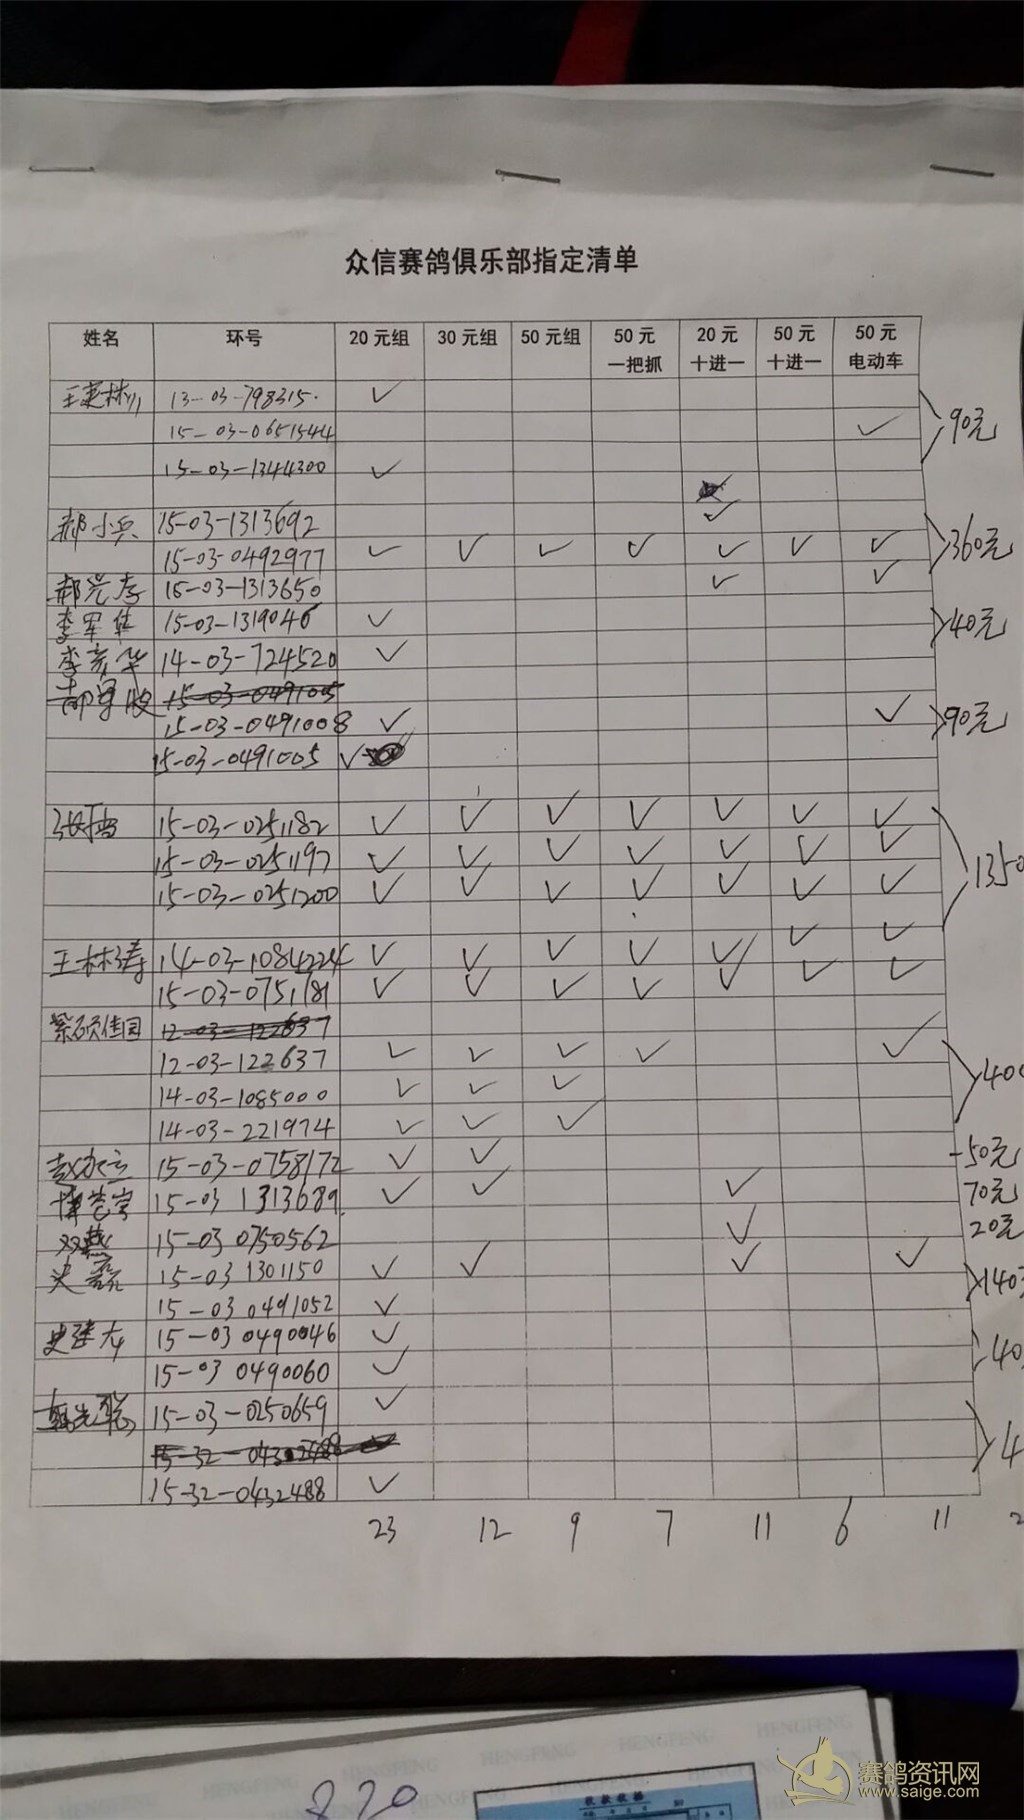 众信赛鸽俱乐部指定清单
姓名 环号 20元组 30元组 50元组 50元一把抓 20元十进一 50元十进一 50元电动车
13-03-798315 ✓
15-03-0651544 ✓ 90元
15-03-1344300 ✓
郝小兵 15-03-1313692 ✓
15-03-0492977 ✓ ✓ ✓ ✓ ✓ ✓ ✓ 360元
郝光孝 15-03-1313650 ✓ ✓
李军伟 15-03-1319046 ✓ 40元
李彦华 14-03-724520 ✓
15-03-0491005
15-03-0491008 ✓ ✓ 90元
15-03-0491005 ✓
15-03-0251182 ✓ ✓ ✓ ✓ ✓ ✓ ✓
15-03-0251197 ✓ ✓ ✓ ✓ ✓ ✓ ✓ 1350
15-03-0251200 ✓ ✓ ✓ ✓ ✓ ✓ ✓
王林涛 14-03-1084224 ✓ ✓ ✓ ✓ ✓ ✓ ✓
15-03-0751181 ✓ ✓ ✓ ✓ ✓ ✓ ✓
紫硕佳园 12-03-122637
12-03-122637 ✓ ✓ ✓ ✓ ✓
14-03-1085000 ✓ ✓ ✓ 400
14-03-221974 ✓ ✓ ✓
15-03-0758172 ✓ ✓ 50元
15-03 1313689 ✓ ✓ ✓ 70元
双燕 15-03 0750562 ✓ 20元
史 15-03 1301150 ✓ ✓ ✓ ✓ 140
15-03 0491052 ✓
史建龙 15-03 0490046 ✓ 40
15-03 0490060 ✓
15-03-0250659 ✓
4
15-32-0432488 ✓
23 12 9 7 11 6 11 2
HENGFENG HENGFENG HENGFENG HENGFENG
820
收款收据
赛鸽资讯网
www.saige.com